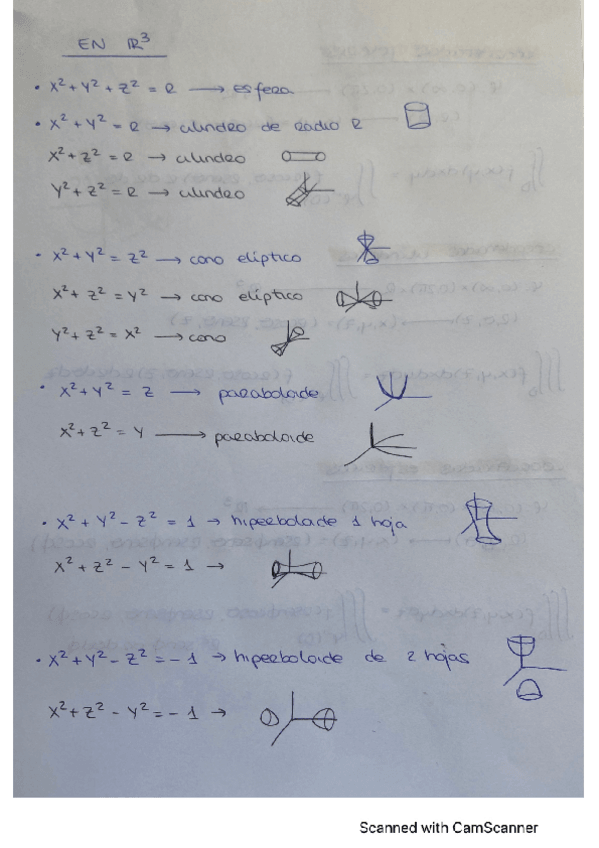 EN R³
• x² + y² + z² = R → esfera
• x² + y² = R → cilindro de radio R
x² + z² = R → cilindro
y² + z² = R → cilindro
• x² + y² = z² → cono elíptico
x² + z² = y² → cono elíptico
y² + z² = x² → cono
• x² + y² = z → paraboloide
x² + z² = y → paraboloide
• x² + y² - z² = 1 → hiperboloide 1 hoja
x² + z² - y² = 1 →
• x² + y² - z² = -1 → hiperboloide de 2 hojas
x² + z² - y² = -1 →
Scanned with CamScanner